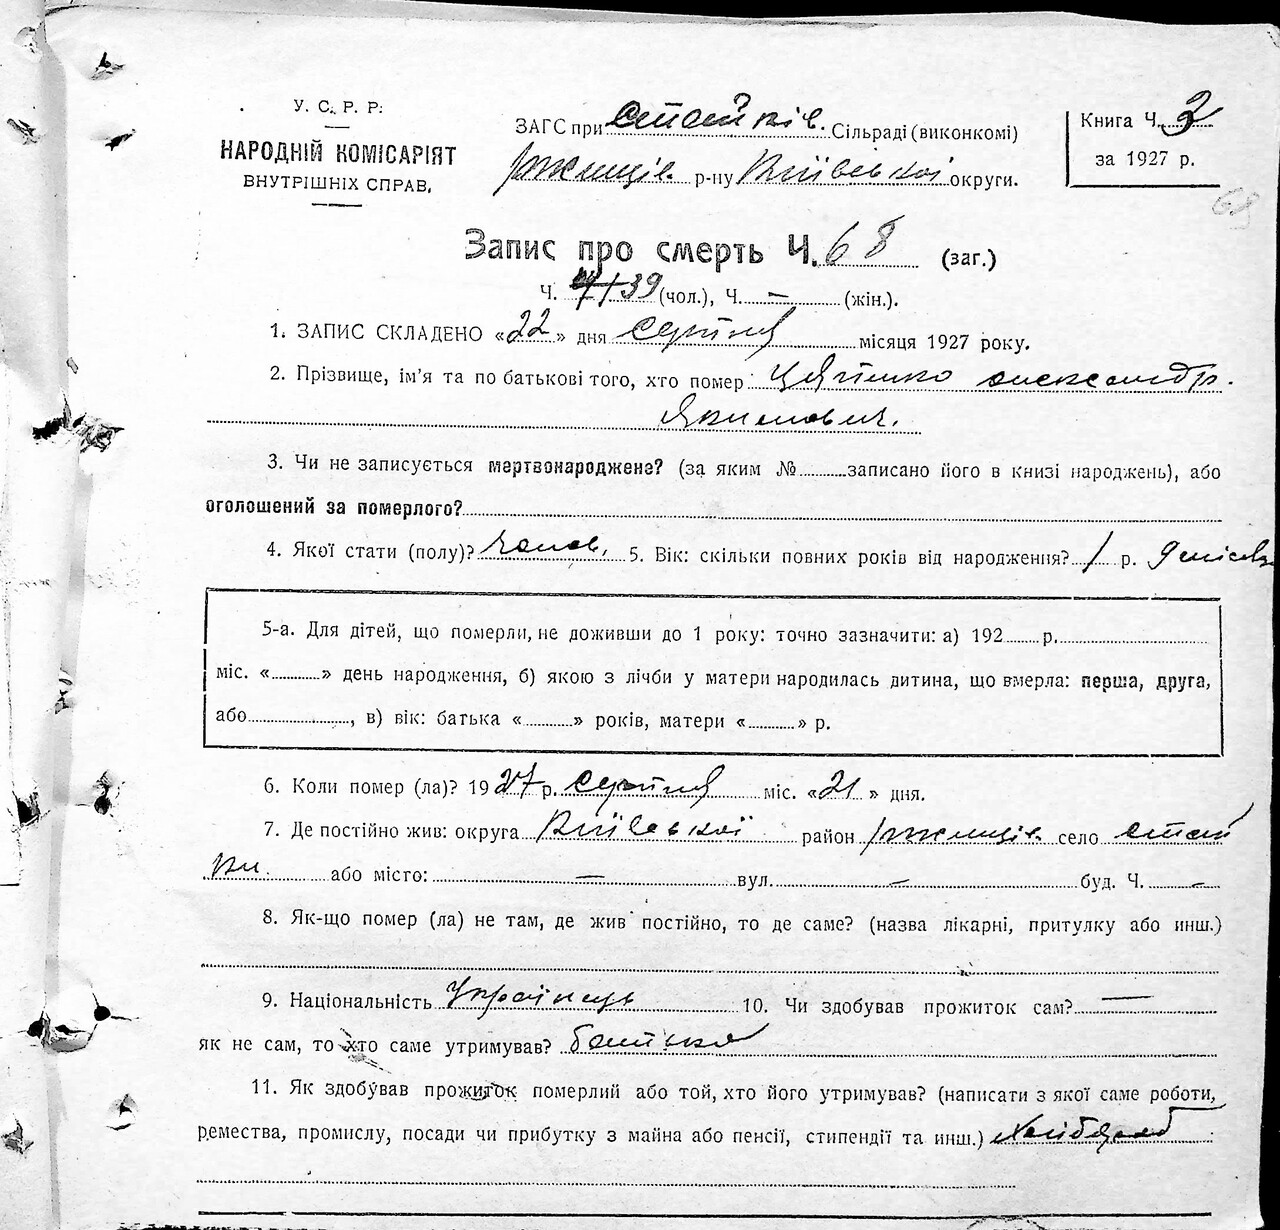 У. С. Р. Р.
НАРОДНІЙ КОМІСАРІЯТ
ВНУТРІШНІХ СПРАВ.
ЗАГС при Стайків. Сільраді (виконкомі)
Ржищів. р-ну Київської округи.
Книга Ч. 3
за 1927 р.
68
Запис про смерть Ч. 68 (заг.)
Ч. 39 (чол.), Ч. — (жін.).
1. ЗАПИС СКЛАДЕНО «22» дня серпня місяця 1927 року.
2. Прізвище, ім'я та по батькові того, хто помер Олександр.
Якимович.
3. Чи не записується мертвонароджене? (за яким № записано його в книзі народжень), або
оголошений за померлого?
4. Якої стати (полу)? чолов. 5. Вік: скільки повних років від народження? 1 р. 9 місяців
5-а. Для дітей, що померли, не доживши до 1 року: точно зазначити: а) 192 р.
міс. « » день народження, б) якою з лічби у матери народилась дитина, що вмерла: перша, друга,
або , в) вік: батька « » років, матери « » р.
6. Коли помер (ла)? 1927 р. серпня міс. «21» дня.
7. Де постійно жив: округа Київської район Ржищів. село Стай
ки. або місто: — вул. — буд. Ч. —
8. Як-що помер (ла) не там, де жив постійно, то де саме? (назва лікарні, притулку або инш.)
9. Національність Українець 10. Чи здобував прожиток сам? —
як не сам, то хто саме утримував? батько
11. Як здобував прожиток померлий або той, хто його утримував? (написати з якої саме роботи,
ремества, промислу, посади чи прибутку з майна або пенсії, стипендії та инш.) Хлібороб